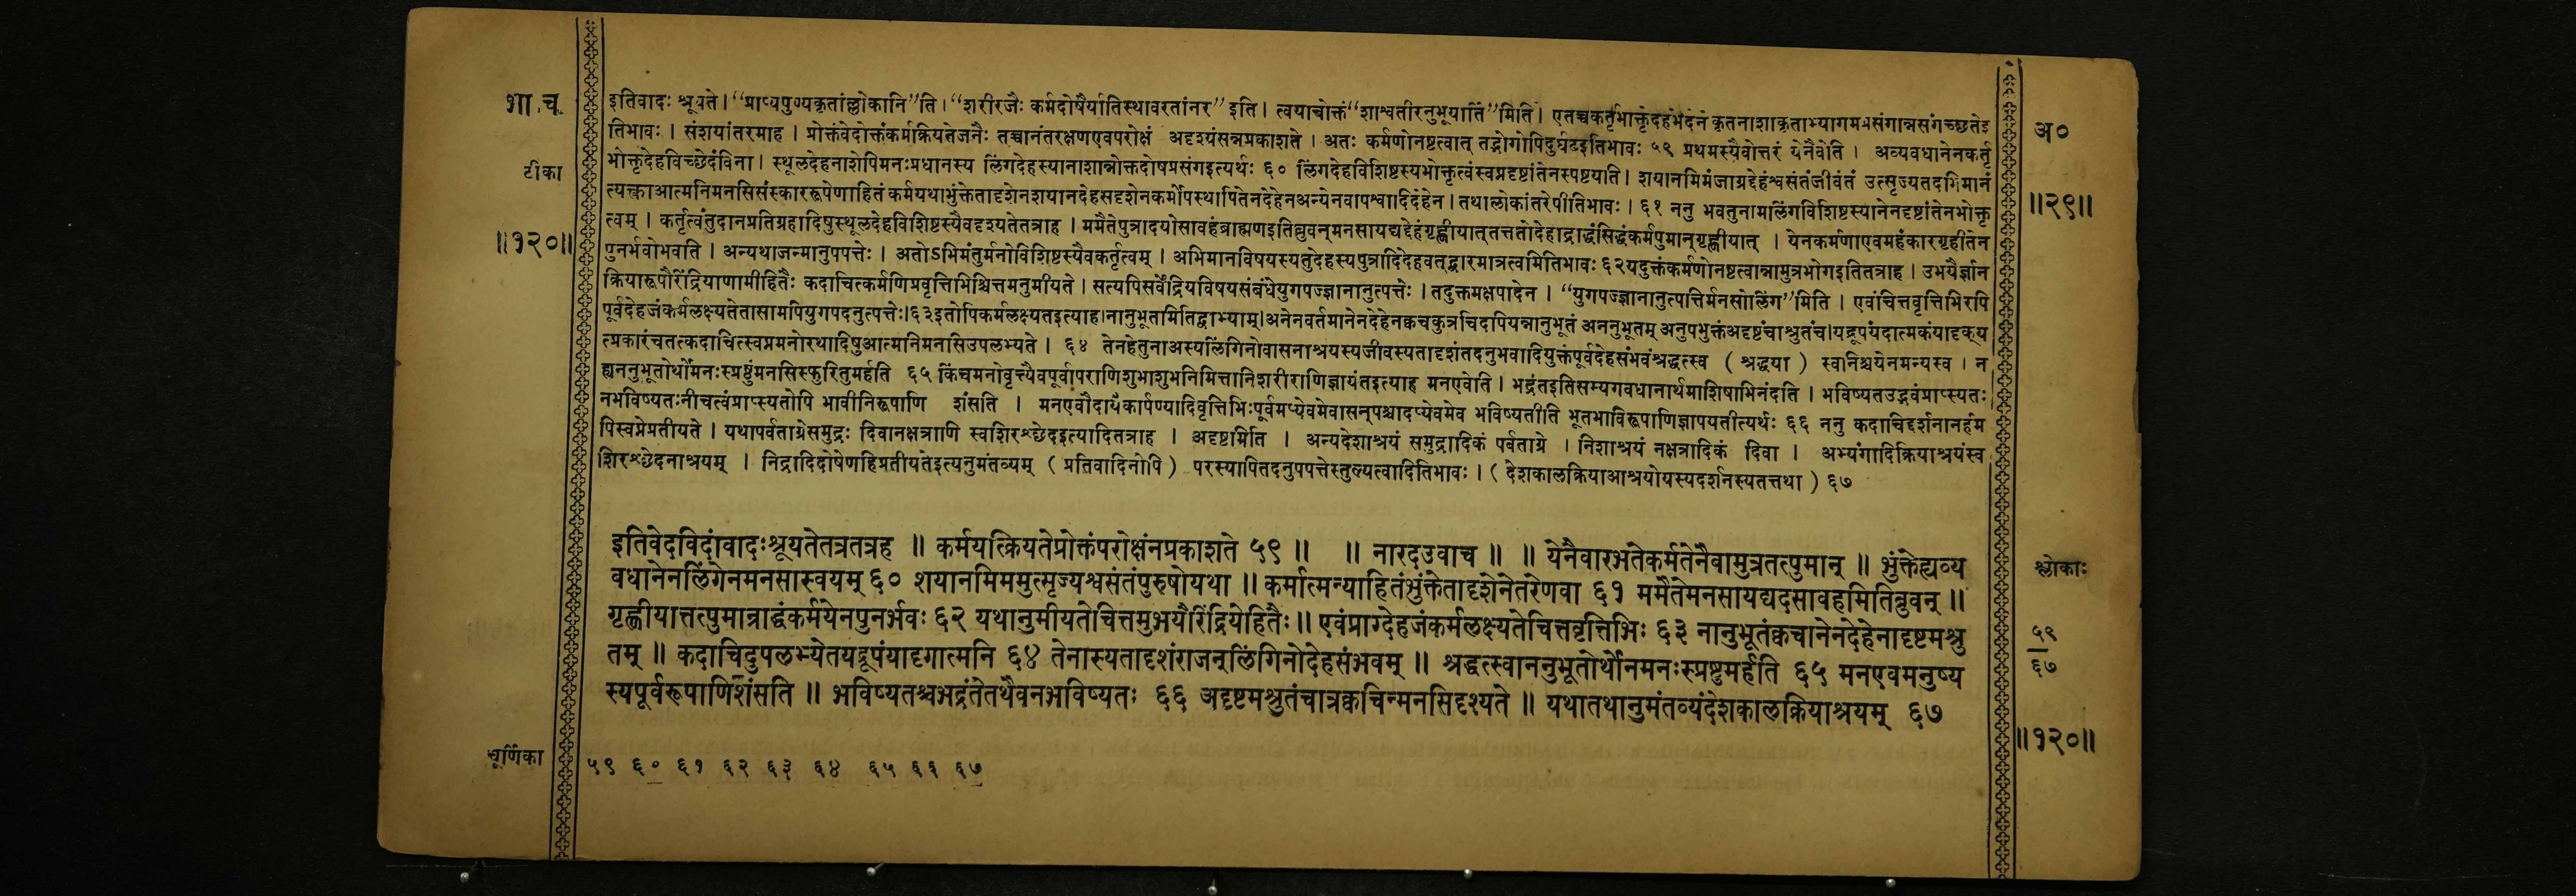 भा. च.
इतिवादः श्रूयते । “प्राप्यपुण्यकृतांल्लोकानि”ति । “शरीरजैः कर्मदोषैर्यातिस्थावरतांनर” इति । त्वयाचोक्तं“शाश्वतीरनुभूयार्ति”मिति । एतच्चकर्तृभोक्तृदेहभेदेन कृतनाशाकृताभ्यागमप्रसंगान्नसंगच्छतेइ
तिभावः । संशयांतरमाह । प्रोक्तंवेदोक्तंकर्मक्रियतेजनैः तच्चानंतरक्षणएवपरोक्षं अदृश्यंसन्नप्रकाशते । अतः कर्मणोनष्टत्वात् तद्भोगोपिदुर्घटइतिभावः ५९ प्रथमस्यैवोत्तरं येनैवेति । अव्यवधानेनकर्तृ
अ०
टीका
भोक्तृदेहविच्छेदंविना । स्थूलदेहनाशेपिमनःप्रधानस्य लिंगदेहस्यानाशान्नोक्तदोषप्रसंगइत्यर्थः ६० लिंगदेहविशिष्टस्यभोक्तृत्वंस्वप्नदृष्टांतेनस्पष्टयति । शयानमिमंजाग्रद्देहंश्वसंतंजीवंतं उत्सृज्यतदभिमानं
त्यक्त्वाआत्मनिमनसिसंस्काररूपेणाहितं कर्मयथाभुंक्तेतादृशेनशयानदेहसदृशेनकर्मोपस्थापितेनदेहेनअन्येनवापश्वादिदेहेन । तथालोकांतरेपीतिभावः । ६१ ननु भवतुनामलिंगविशिष्टस्यानेनदृष्टांतेनभोक्तृ
॥२९॥
त्वम् । कर्तृत्वंतुदानप्रतिग्रहादिषुस्थूलदेहविशिष्टस्यैवदृश्यतेतत्राह । ममैतेपुत्रादयोसावहंब्राह्मणइतिब्रुवन्मनसायद्यद्देहंगृह्णीयात्तत्ततोदेहाद्राद्धंसिद्धंकर्मपुमान्गृह्णीयात् । येनकर्मणाएवमहंकारगृहीतेन
॥१२०॥
पुनर्भवोभवति । अन्यथाजन्मानुपपत्तेः । अतोऽभिमंतुर्मनोविशिष्टस्यैवकर्तृत्वम् । अभिमानविषयस्यतुदेहस्यपुत्रादिदेहवत्द्वारमात्रत्वमितिभावः ६२यदुक्तंकर्मणोनष्टत्वान्नामुत्रभोगइतितत्राह । उभयैर्ज्ञान
क्रियारूपैरिंद्रियाणामीहितैः कदाचित्कर्मणिप्रवृत्तिभिश्चित्तमनुमीयते । सत्यपिसर्वेंद्रियविषयसंबंधेयुगपज्ज्ञानानुत्पत्तेः । तदुक्तमक्षपादेन । “युगपज्ज्ञानानुत्पत्तिर्मनसोलिंग”मिति । एवंचित्तवृत्तिभिरपि
पूर्वदेहजंकर्मलक्ष्यतेतासामपियुगपदनुत्पत्तेः।६३इतोपिकर्मलक्ष्यतइत्याह।नानुभूतमितिद्वाभ्याम्।अनेनवर्तमानेनदेहेनक्वचकुत्रचिदपियन्नानुभूतं अननुभूतम् अनुपभुक्तंअदृष्टंचाश्रुतंच।यद्रूपंयदात्मकंयादृक्य
त्प्रकारंचतत्कदाचित्स्वप्नमनोरथादिषुआत्मनिमनसिउपलभ्यते । ६४ तेनहेतुनाअस्यलिंगिनोवासनाश्रयस्यजीवस्यतादृशंतदनुभवादियुक्तंपूर्वदेहसंभवंश्रद्धत्स्व ( श्रद्धया ) स्वनिश्चयेनमन्यस्व । न
ह्यननुभूतोर्थोमनःस्प्रष्टुंमनसिस्फुरितुमर्हति ६५ किंचमनोवृत्त्यैवपूर्वापराणिशुभाशुभनिमित्तानिशरीराणिज्ञायंतइत्याह मनएवेति । भद्रंतइतिसम्यगवधानार्थमाशिषाभिनंदति । भविष्यतउद्भवंप्राप्स्यतः
नभविष्यतःनीचत्वंप्राप्स्यतोपि भावीनिरूपाणि शंसति । मनएवौदार्यकार्पण्यादिवृत्तिभिःपूर्वमप्येवमेवासन्पश्चादप्येवमेव भविष्यतीति भूतभाविरूपाणिज्ञापयतीत्यर्थः ६६ ननु कदाचिद्दर्शनानर्हम
पिस्वप्नेप्रतीयते । यथापर्वताग्रेसमुद्रः दिवानक्षत्राणि स्वशिरश्छेदइत्यादितत्राह । अदृष्टमिति । अन्यदेशाश्रयं समुद्रादिकं पर्वताग्रे । निशाश्रयं नक्षत्रादिकं दिवा । अभ्यंगादिक्रियाश्रयंस्व
शिरश्छेदनाश्रयम् । निद्रादिदोषेणहिप्रतीयतेइत्यनुमंतव्यम् ( प्रतिवादिनोपि ) परस्यापितदनुपपत्तेस्तुल्यत्वादितिभावः । ( देशकालक्रियाआश्रयोयस्यदर्शनस्यतत्तथा ) ६७
इतिवेदविदांवादःश्रूयतेतत्रतत्रह ॥ कर्मयत्क्रियतेप्रोक्तंपरोक्षंनप्रकाशते ५९ ॥ ॥ नारदउवाच ॥ ॥ येनैवारभतेकर्मतेनैवामुत्रतत्पुमान् ॥ भुंक्तेह्यव्य
श्लोकाः
वधानेनलिंगेनमनसास्वयम् ६० शयानमिममुत्सृज्यश्वसंतंपुरुषोयथा ॥ कर्मात्मन्याहितंभुंक्तेतादृशेनेतरेणवा ६१ ममैतेमनसायद्यदसावहमितिब्रुवन् ॥
गृह्णीयात्तत्पुमान्राद्धंकर्मयेनपुनर्भवः ६२ यथानुमीयतेचित्तमुभयैरिंद्रियेहितैः ॥ एवंप्राग्देहजंकर्मलक्ष्यतेचित्तवृत्तिभिः ६३ नानुभूतंक्वचानेनदेहेनादृष्टमश्रु
५९
तम् ॥ कदाचिदुपलभ्येतयद्रूपंयादृगात्मनि ६४ तेनास्यतादृशंराजन्लिंगिनोदेहसंभवम् ॥ श्रद्धत्स्वाननुभूतोर्थोनमनःस्प्रष्टुमर्हति ६५ मनएवमनुष्य
६७
स्यपूर्वरूपाणिशंसति ॥ भविष्यतश्चभद्रंतेतथैवनभविष्यतः ६६ अदृष्टमश्रुतंचात्रक्वचिन्मनसिदृश्यते ॥ यथातथानुमंतव्यंदेशकालक्रियाश्रयम् ६७
॥१२०॥
चूर्णिका
५९ ६० ६१ ६२ ६३ ६४ ६५ ६६ ६७